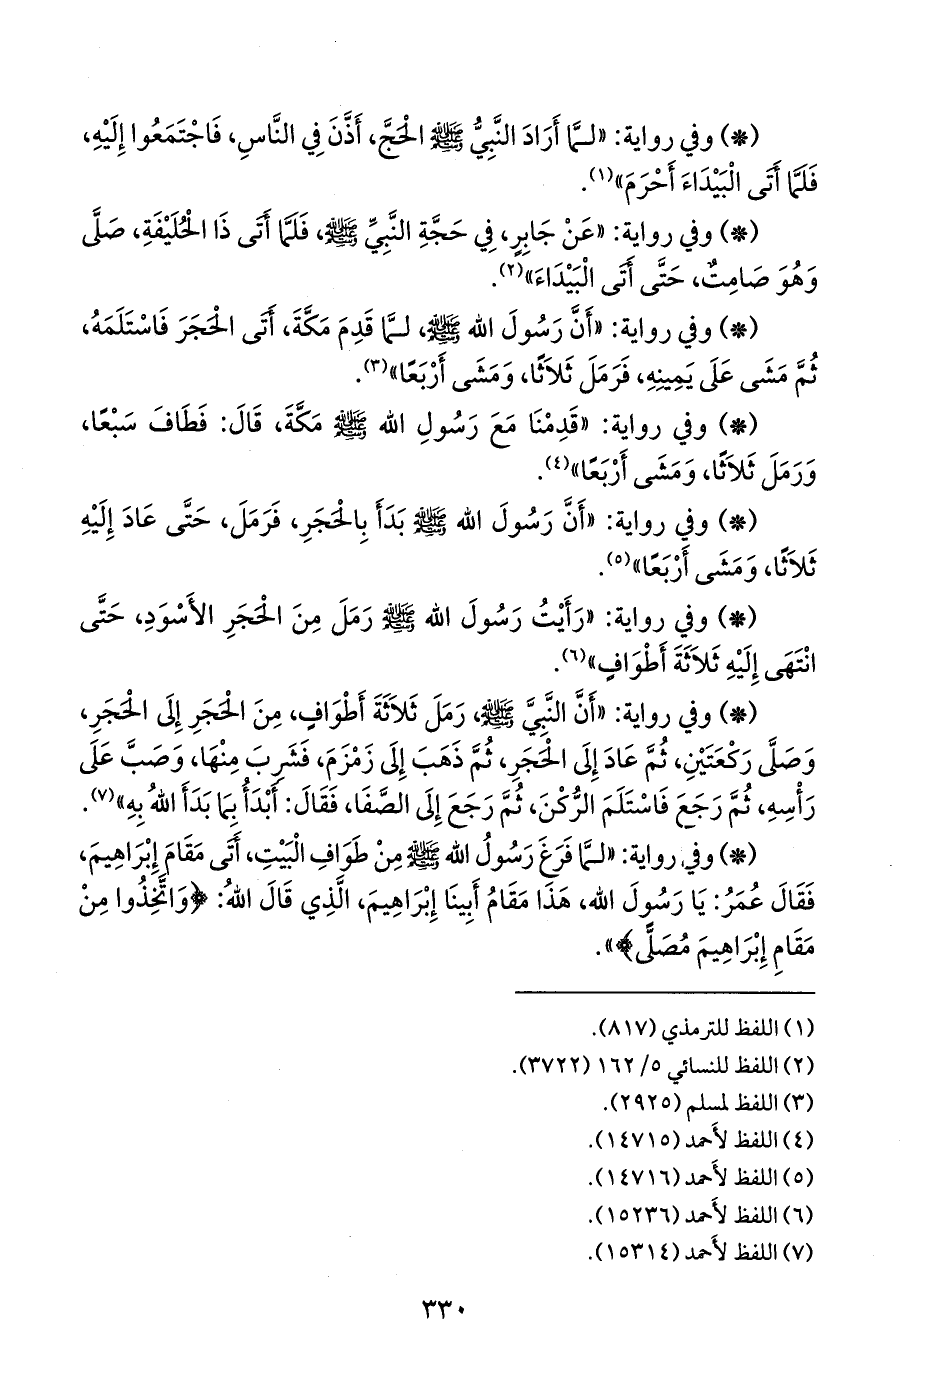 (*) وفي رواية: «لـمَّا أَرَادَ النَّبِيُّ ﷺ الْحَجَّ، أَذَّنَ فِي النَّاسِ، فَاجْتَمَعُوا إِلَيْهِ،
فَلَمَّا أَتَى الْبَيْدَاءَ أَحْرَمَ»(١).
(*) وفي رواية: «عَنْ جَابِرٍ، فِي حَجَّةِ النَّبِيِّ ﷺ، فَلَمَّا أَتَى ذَا الْحُلَيْفَةِ، صَلَّى
وَهُوَ صَامِتٌ، حَتَّى أَتَى الْبَيْدَاءَ»(٢).
(*) وفي رواية: «أَنَّ رَسُولَ الله ﷺ، لـمَّا قَدِمَ مَكَّةَ، أَتَى الْحَجَرَ فَاسْتَلَمَهُ،
ثُمَّ مَشَى عَلَى يَمِينِهِ، فَرَمَلَ ثَلاَثًا، وَمَشَى أَرْبَعًا»(٣).
(*) وفي رواية: «قَدِمْنَا مَعَ رَسُولِ الله ﷺ مَكَّةَ، قَالَ: فَطَافَ سَبْعًا،
وَرَمَلَ ثَلاَثًا، وَمَشَى أَرْبَعًا»(٤).
(*) وفي رواية: «أَنَّ رَسُولَ الله ﷺ بَدَأَ بِالْحَجَرِ، فَرَمَلَ، حَتَّى عَادَ إِلَيْهِ
ثَلاَثًا، وَمَشَى أَرْبَعًا»(٥).
(*) وفي رواية: «رَأَيْتُ رَسُولَ الله ﷺ رَمَلَ مِنَ الْحَجَرِ الأَسْوَدِ، حَتَّى
انْتَهَى إِلَيْهِ ثَلاَثَةَ أَطْوَافٍ»(٦).
(*) وفي رواية: «أَنَّ النَّبِيَّ ﷺ، رَمَلَ ثَلاَثَةَ أَطْوَافٍ، مِنَ الْحَجَرِ إِلَى الْحَجَرِ،
وَصَلَّى رَكْعَتَيْنِ، ثُمَّ عَادَ إِلَى الْحَجَرِ، ثُمَّ ذَهَبَ إِلَى زَمْزَمَ، فَشَرِبَ مِنْهَا، وَصَبَّ عَلَى
رَأْسِهِ، ثُمَّ رَجَعَ فَاسْتَلَمَ الرُّكْنَ، ثُمَّ رَجَعَ إِلَى الصَّفَا، فَقَالَ: أَبْدَأُ بِمَا بَدَأَ اللهُ بِهِ»(٧).
(*) وفي رواية: «لـمَّا فَرَغَ رَسُولُ الله ﷺ مِنْ طَوَافِ الْبَيْتِ، أَتَى مَقَامَ إِبْرَاهِيمَ،
فَقَالَ عُمَرُ: يَا رَسُولَ الله، هَذَا مَقَامُ أَبِينَا إِبْرَاهِيمَ، الَّذِي قَالَ اللهُ: ﴿وَاتَّخِذُوا مِنْ
مَقَامِ إِبْرَاهِيمَ مُصَلًّى﴾».
(١) اللفظ للترمذي (٨١٧).
(٢) اللفظ للنسائي ٥/ ١٦٢ (٣٧٢٢).
(٣) اللفظ لمسلم (٢٩٢٥).
(٤) اللفظ لأحمد (١٤٧١٥).
(٥) اللفظ لأحمد (١٤٧١٦).
(٦) اللفظ لأحمد (١٥٢٣٦).
(٧) اللفظ لأحمد (١٥٣١٤).
٣٣٠